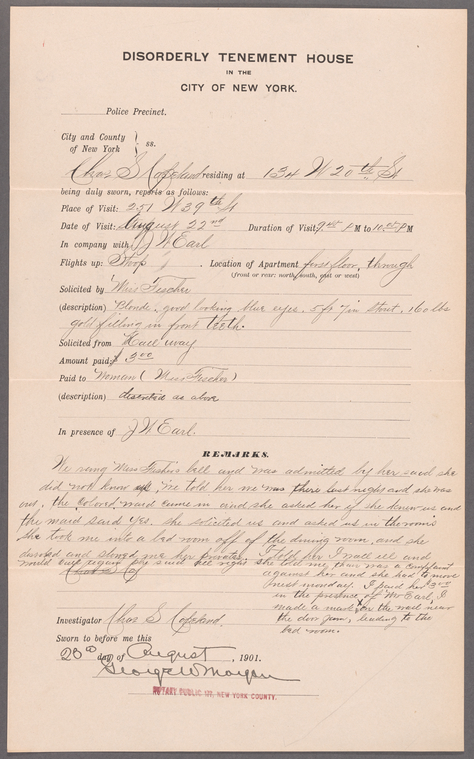 DISORDERLY TENEMENT HOUSE
IN THE
CITY OF NEW YORK.
Police Precinct.
City and County
of New York } ss.
Chas S Copeland residing at 134 W 20th St
being duly sworn, reports as follows:
Place of Visit: 251 W 39th St
Date of Visit: August 22nd Duration of Visit: PM to PM
In company with J W Earl
Flights up: Stoop 1 . Location of Apartment first floor, through
(front or rear: north, south, east or west)
Solicited by Miss Fischer
(description) Blonde, good looking blue eyes, 5 ft 7 in Stout, 160 lbs
gold filling in front teeth.
Solicited from Hall way
Amount paid: $ 3.00
Paid to Woman (Miss Fischer)
(description) described as above
In presence of J W Earl.
REMARKS.
We rung Miss Fishers bell and was admitted by her and she
did not know us, we told her we was there last night and she was
out, the Colored maid came in and she asked her if she knew us and
the maid said yes. she solicited us and asked us in the rooms
She took me into a bed room off of the dining room, and she
and showed me her privates, I told her I call and
would call again she said all right she told me, their was a complaint
against her and she had to move
next monday. I paid her 3.00
in the presence of Mr Earl, I
made a mark X on the wall near
the door jam, leading to the
bed room.
Investigator Chas S Copeland.
Sworn to before me this
23d day of August , 1901.
George W Morgan
NOTARY PUBLIC NEW YORK COUNTY.